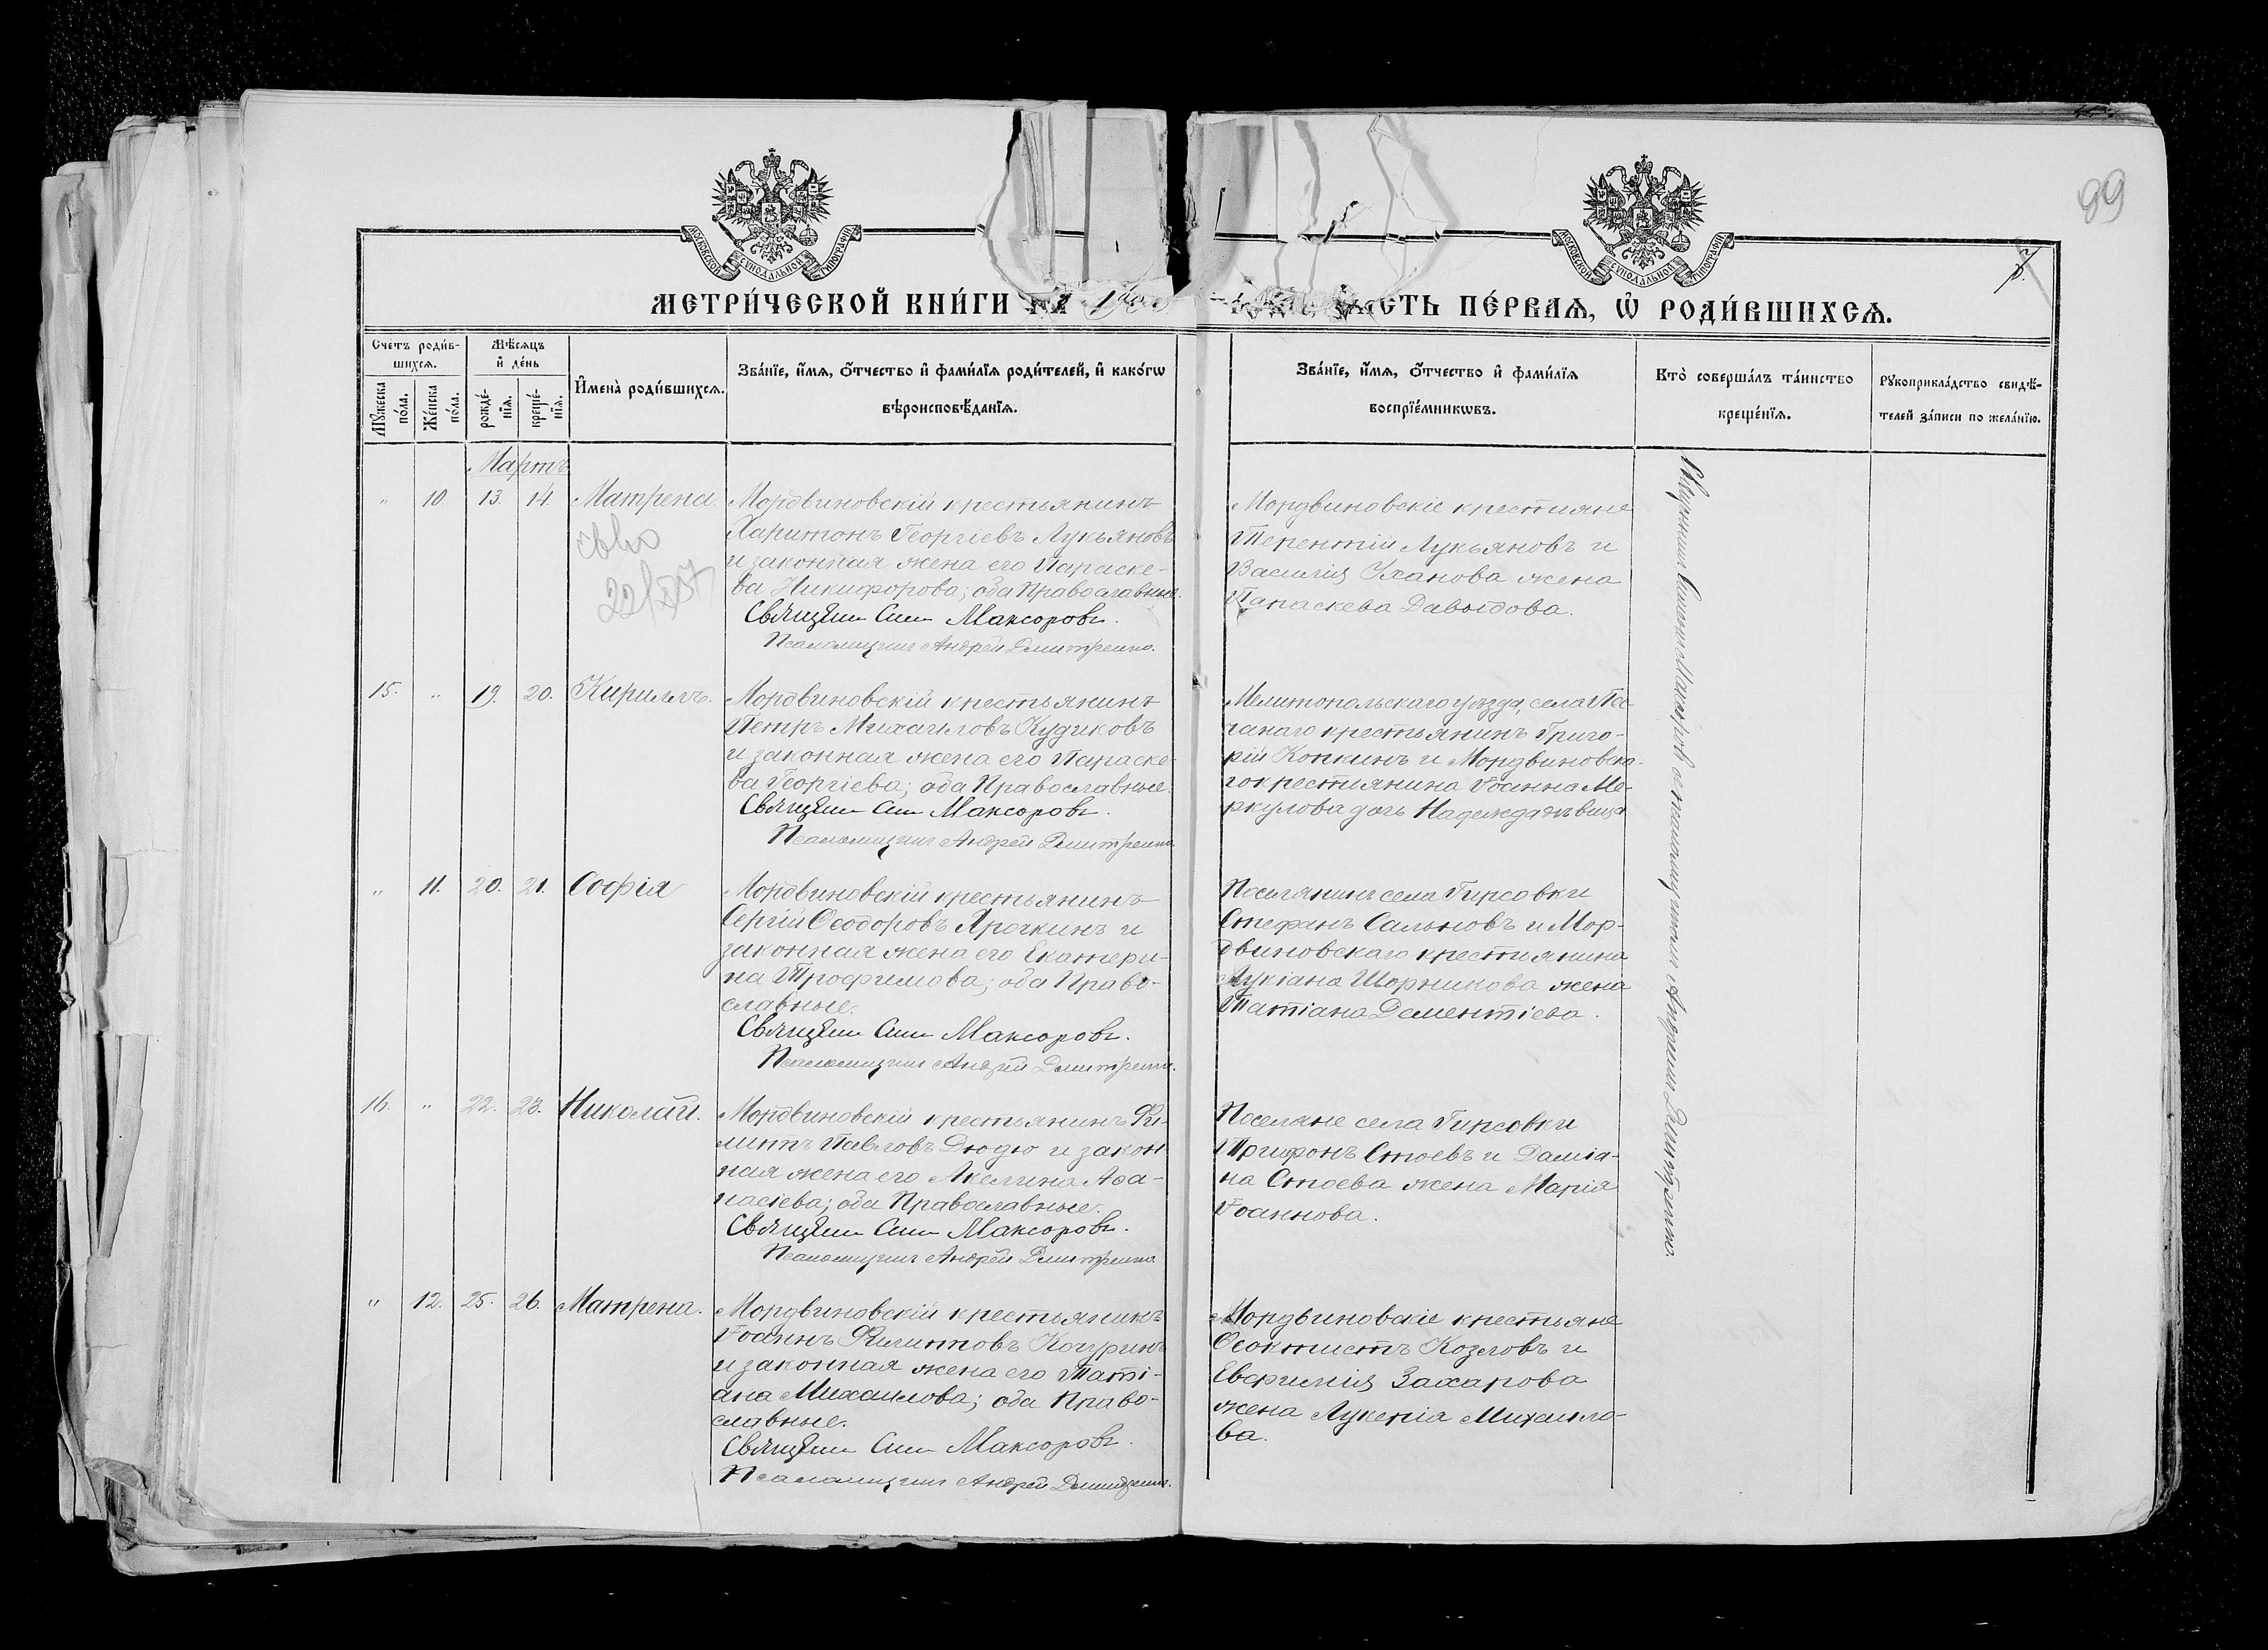 99
7.
МОСКОВСКОЙ СѴНОДАЛЬНОЙ ТИПОГРАФІИ
МОСКОВСКОЙ СѴНОДАЛЬНОЙ ТИПОГРАФІИ
МЕТРИ́ЧЕСКОЙ КНИ́ГИ НА
ЧАСТЬ ПЕ́РВАѦ, Ѡ РОДИ́ВШИХСѦ.
Сче́тъ роди́в-
шихсѧ.
Мꙋ́жеска по́ла.
Же́нска по́ла.
Мѣ́сѧцъ
и҆ де́нь
рожде́-
нїѧ.
креще́-
нїѧ.
И҆мена̀ роди́вшихсѧ.
Зва́нїе, и҆́мѧ, ѻ҆́тчество и҆ фами́лїѧ роди́телей, и҆ како́гѡ
вѣроисповѣ́данїѧ.
Зва́нїе, и҆́мѧ, ѻ҆́тчество и҆ фами́лїѧ
воспрїе́мникѡвъ.
Кто̀ соверша́лъ та́инство
креще́нїѧ.
Рꙋкоприкла́дство свидѣ́-
телей за́писи по жела́нїю.
Мартъ
" 10 13. 14. Матрена.
Мордвиновскій крестьянинъ
Харитонъ Георгіевъ Лукьяновъ
и законная жена его Параске-
ва Никифорова; оба Православные.
Максоровъ.
Псаломщикъ Андрей Дмитренко.
Мордвиновскіе крестияне
Терентій Лукьяновъ и
Василія Уханова жена
Параскева Давыдова.
15. " 19. 20. Кириллъ.
Мордвиновскій крестьянинъ
Петръ Михаиловъ Кудиковъ
и законная жена его Параске-
ва Георгіева; оба Православные.
Максоровъ.
Псаломщикъ Андрей Дмитренко.
Мелитопольскаго уѣзда, села Пес-
чанаго крестьянинъ Григо-
рій Копкинъ и Мордвиновска-
го крестиянина Іоанна Ме-
ркулова дочь Надежда дѣвица
" 11. 20. 21. Софія
Мордвиновскій крестьянинъ
Сергій Ѳеодоровъ Ярочкинъ и
законная жена его Екатери-
на Трофимова; оба Право-
славные.
Максоровъ.
Псаломщикъ Андрей Дмитренко.
Поселянинъ села Гирсовки
Стефанъ Сальновъ и Мор-
двиновскаго крестиянина
Лукіана Шорникова жена
Татіана Дементіева.
16. " 22. 23. Николай.
Мордвиновскій крестьянинъ Фи-
липъ Павловъ Дюдю и закон-
ная жена его Акелина Аѳа-
насіева; оба Православные.
Максоровъ.
Псаломщикъ Андрей Дмитренко.
Поселяне села Гирсовки
Трифонъ Стоевъ и Даміа-
на Стоева жена Марія
Іоаннова.
" 12. 25. 26. Матрена.
Мордвиновскій крестьянинъ
Іоаннъ Филиповъ Кочуринъ
и законная жена его Таті-
ана Михаилова; оба Право-
славные.
Максоровъ.
Псаломщикъ Андрей Дмитренко.
Мордвиновскіе крестьяне
Ѳеоктистъ Козловъ и
Евфимія Захарова
жена Лукенія Михаило-
ва.
Максоровъ съ псаломщикомъ Андреемъ Дмитренко.